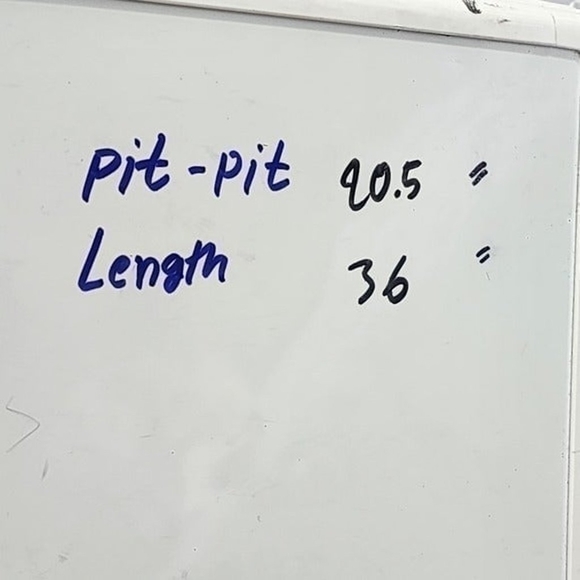 Pit-Pit 20.5 "
Length 36 "